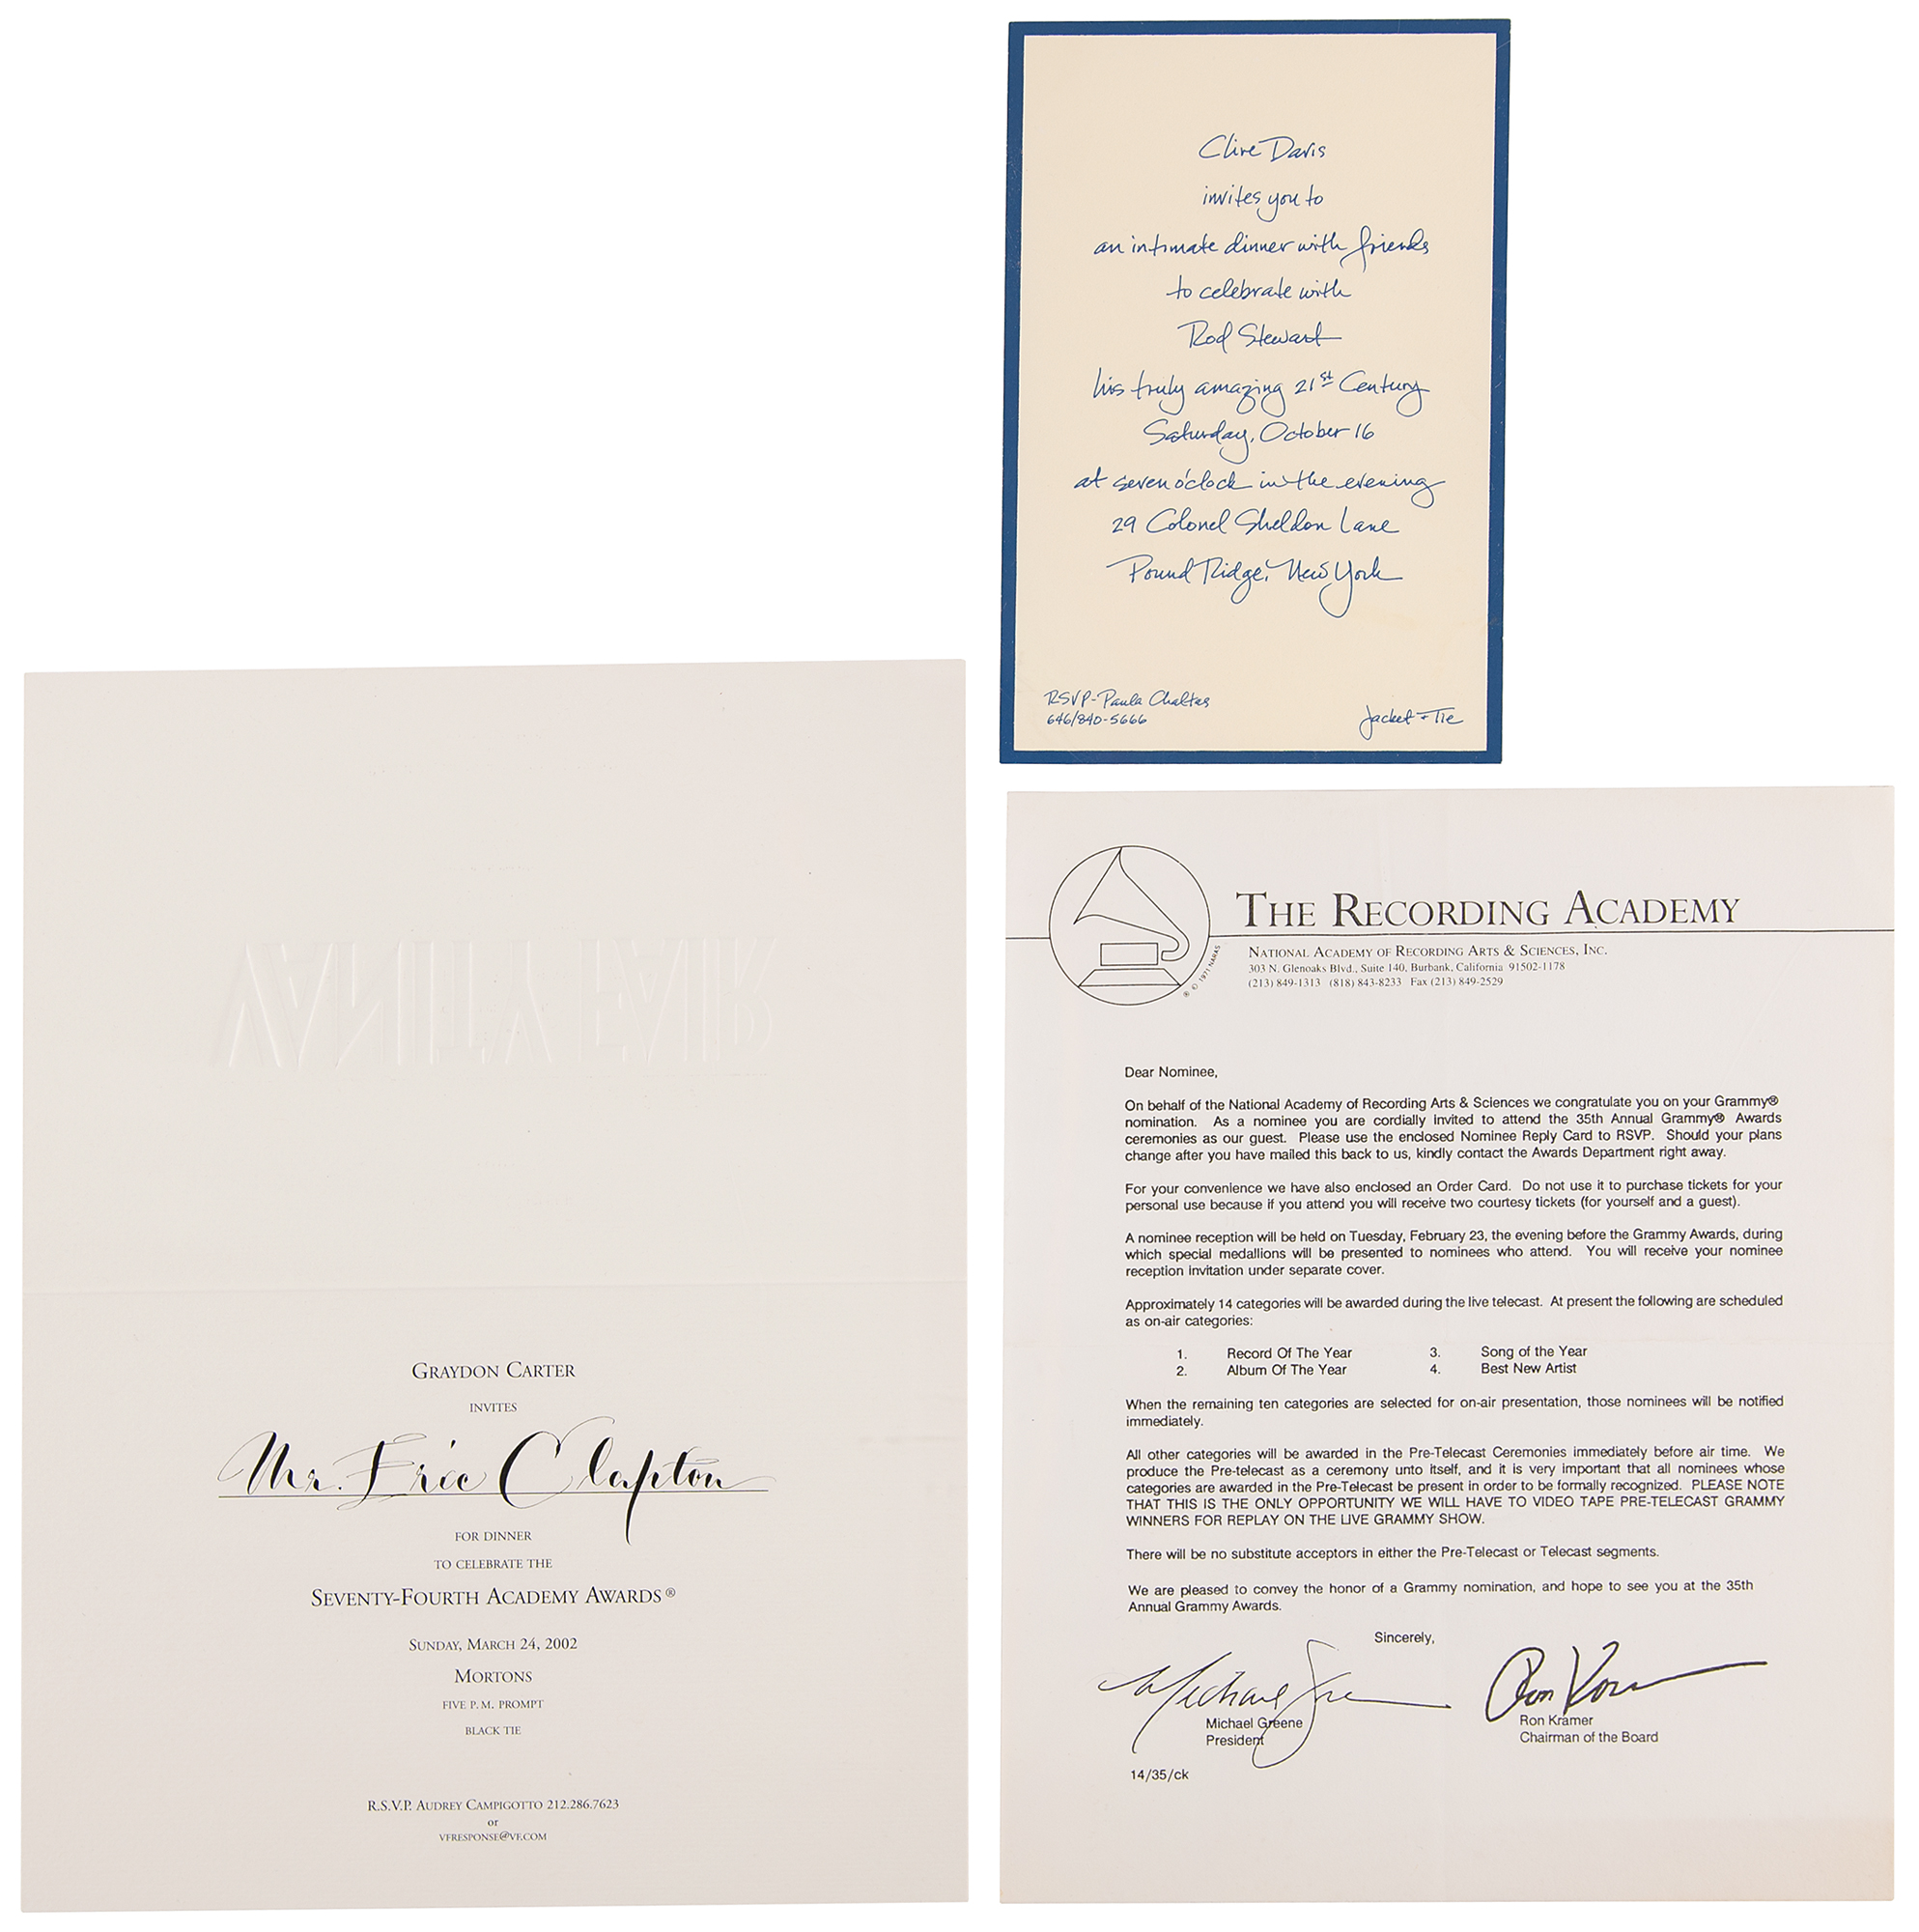 Clive Davis
invites you to
an intimate dinner with friends
to celebrate with
Rod Stewart
his truly amazing 21st Century
Saturday, October 16
at seven o'clock in the evening
29 Colonel Sheldon Lane
Pound Ridge, New York
RSVP-Paula Chaltas
646/840-5666
Jacket + Tie
VANITY FAIR
GRAYDON CARTER
INVITES
Mr. Eric Clapton
FOR DINNER
TO CELEBRATE THE
SEVENTY-FOURTH ACADEMY AWARDS®
SUNDAY, MARCH 24, 2002
MORTONS
FIVE P.M. PROMPT
BLACK TIE
R.S.V.P. AUDREY CAMPIGOTTO 212.286.7623
or
VFRESPONSE@VF.COM
THE RECORDING ACADEMY
NATIONAL ACADEMY OF RECORDING ARTS & SCIENCES, INC.
303 N. Glenoaks Blvd., Suite 140, Burbank, California 91502-1178
(213) 849-1313 (818) 843-8233 Fax (213) 849-2529
® © 1971 NARAS
Dear Nominee,
On behalf of the National Academy of Recording Arts & Sciences we congratulate you on your Grammy®
nomination. As a nominee you are cordially invited to attend the 35th Annual Grammy® Awards
ceremonies as our guest. Please use the enclosed Nominee Reply Card to RSVP. Should your plans
change after you have mailed this back to us, kindly contact the Awards Department right away.
For your convenience we have also enclosed an Order Card. Do not use it to purchase tickets for your
personal use because if you attend you will receive two courtesy tickets (for yourself and a guest).
A nominee reception will be held on Tuesday, February 23, the evening before the Grammy Awards, during
which special medallions will be presented to nominees who attend. You will receive your nominee
reception invitation under separate cover.
Approximately 14 categories will be awarded during the live telecast. At present the following are scheduled
as on-air categories:
1. Record Of The Year 3. Song of the Year
2. Album Of The Year 4. Best New Artist
When the remaining ten categories are selected for on-air presentation, those nominees will be notified
immediately.
All other categories will be awarded in the Pre-Telecast Ceremonies immediately before air time. We
produce the Pre-telecast as a ceremony unto itself, and it is very important that all nominees whose
categories are awarded in the Pre-Telecast be present in order to be formally recognized. PLEASE NOTE
THAT THIS IS THE ONLY OPPORTUNITY WE WILL HAVE TO VIDEO TAPE PRE-TELECAST GRAMMY
WINNERS FOR REPLAY ON THE LIVE GRAMMY SHOW.
There will be no substitute acceptors in either the Pre-Telecast or Telecast segments.
We are pleased to convey the honor of a Grammy nomination, and hope to see you at the 35th
Annual Grammy Awards.
Sincerely,
Michael Greene Ron Kramer
President Chairman of the Board
14/35/ck